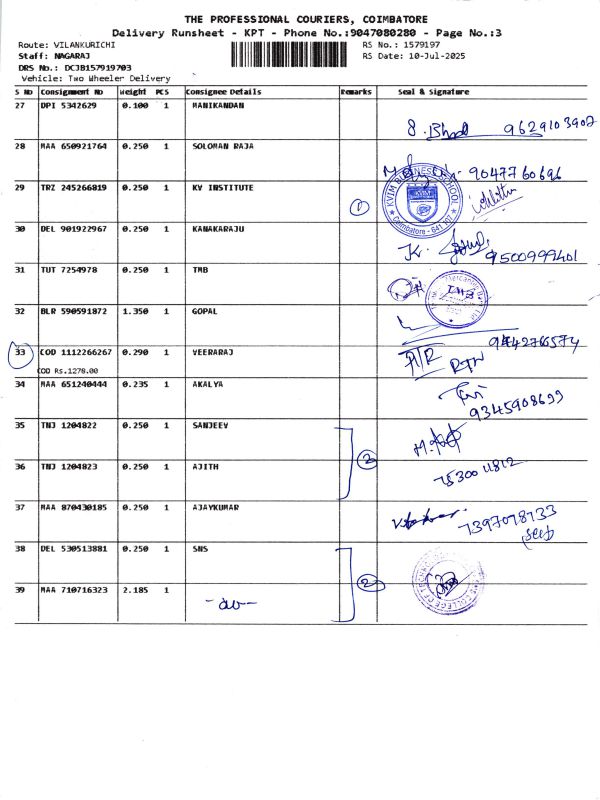 THE PROFESSIONAL COURIERS, COIMBATORE
Delivery Runsheet - KPT - Phone No.:9047080280 - Page No.:3
Route: VILANKURICHI RS No.: 1579197
Staff: NAGARAJ RS Date: 10-Jul-2025
DRS No.: DCJB157919703
Vehicle: Two Wheeler Delivery
S No Consignment No Weight PCS Consignee Details Remarks Seal & Signature
27 DPI 5342629 0.100 1 MANIKANDAN
9629103902
28 MAA 650921764 0.250 1 SOLOMAN RAJA
9047760696
29 TRZ 245266819 0.250 1 KV INSTITUTE
1 KVIM BUSINESS SCHOOL Coimbatore - 641 107
30 DEL 901922967 0.250 1 KANAKARAJU
K. 9500999401
31 TUT 7254978 0.250 1 TMB
TMB
32 BLR 590591872 1.350 1 GOPAL
9442766574
33 COD 1112266267 0.290 1 VEERARAJ A/R RTN
COD Rs.1278.00
34 MAA 651240444 0.235 1 AKALYA
9345908699
35 TNJ 1204822 0.250 1 SANJEEV
2
36 TNJ 1204823 0.250 1 AJITH
37 MAA 870430185 0.250 1 AJAYKUMAR
7397078733
38 DEL 530513881 0.250 1 SNS
2
39 MAA 710716323 2.185 1 -do-